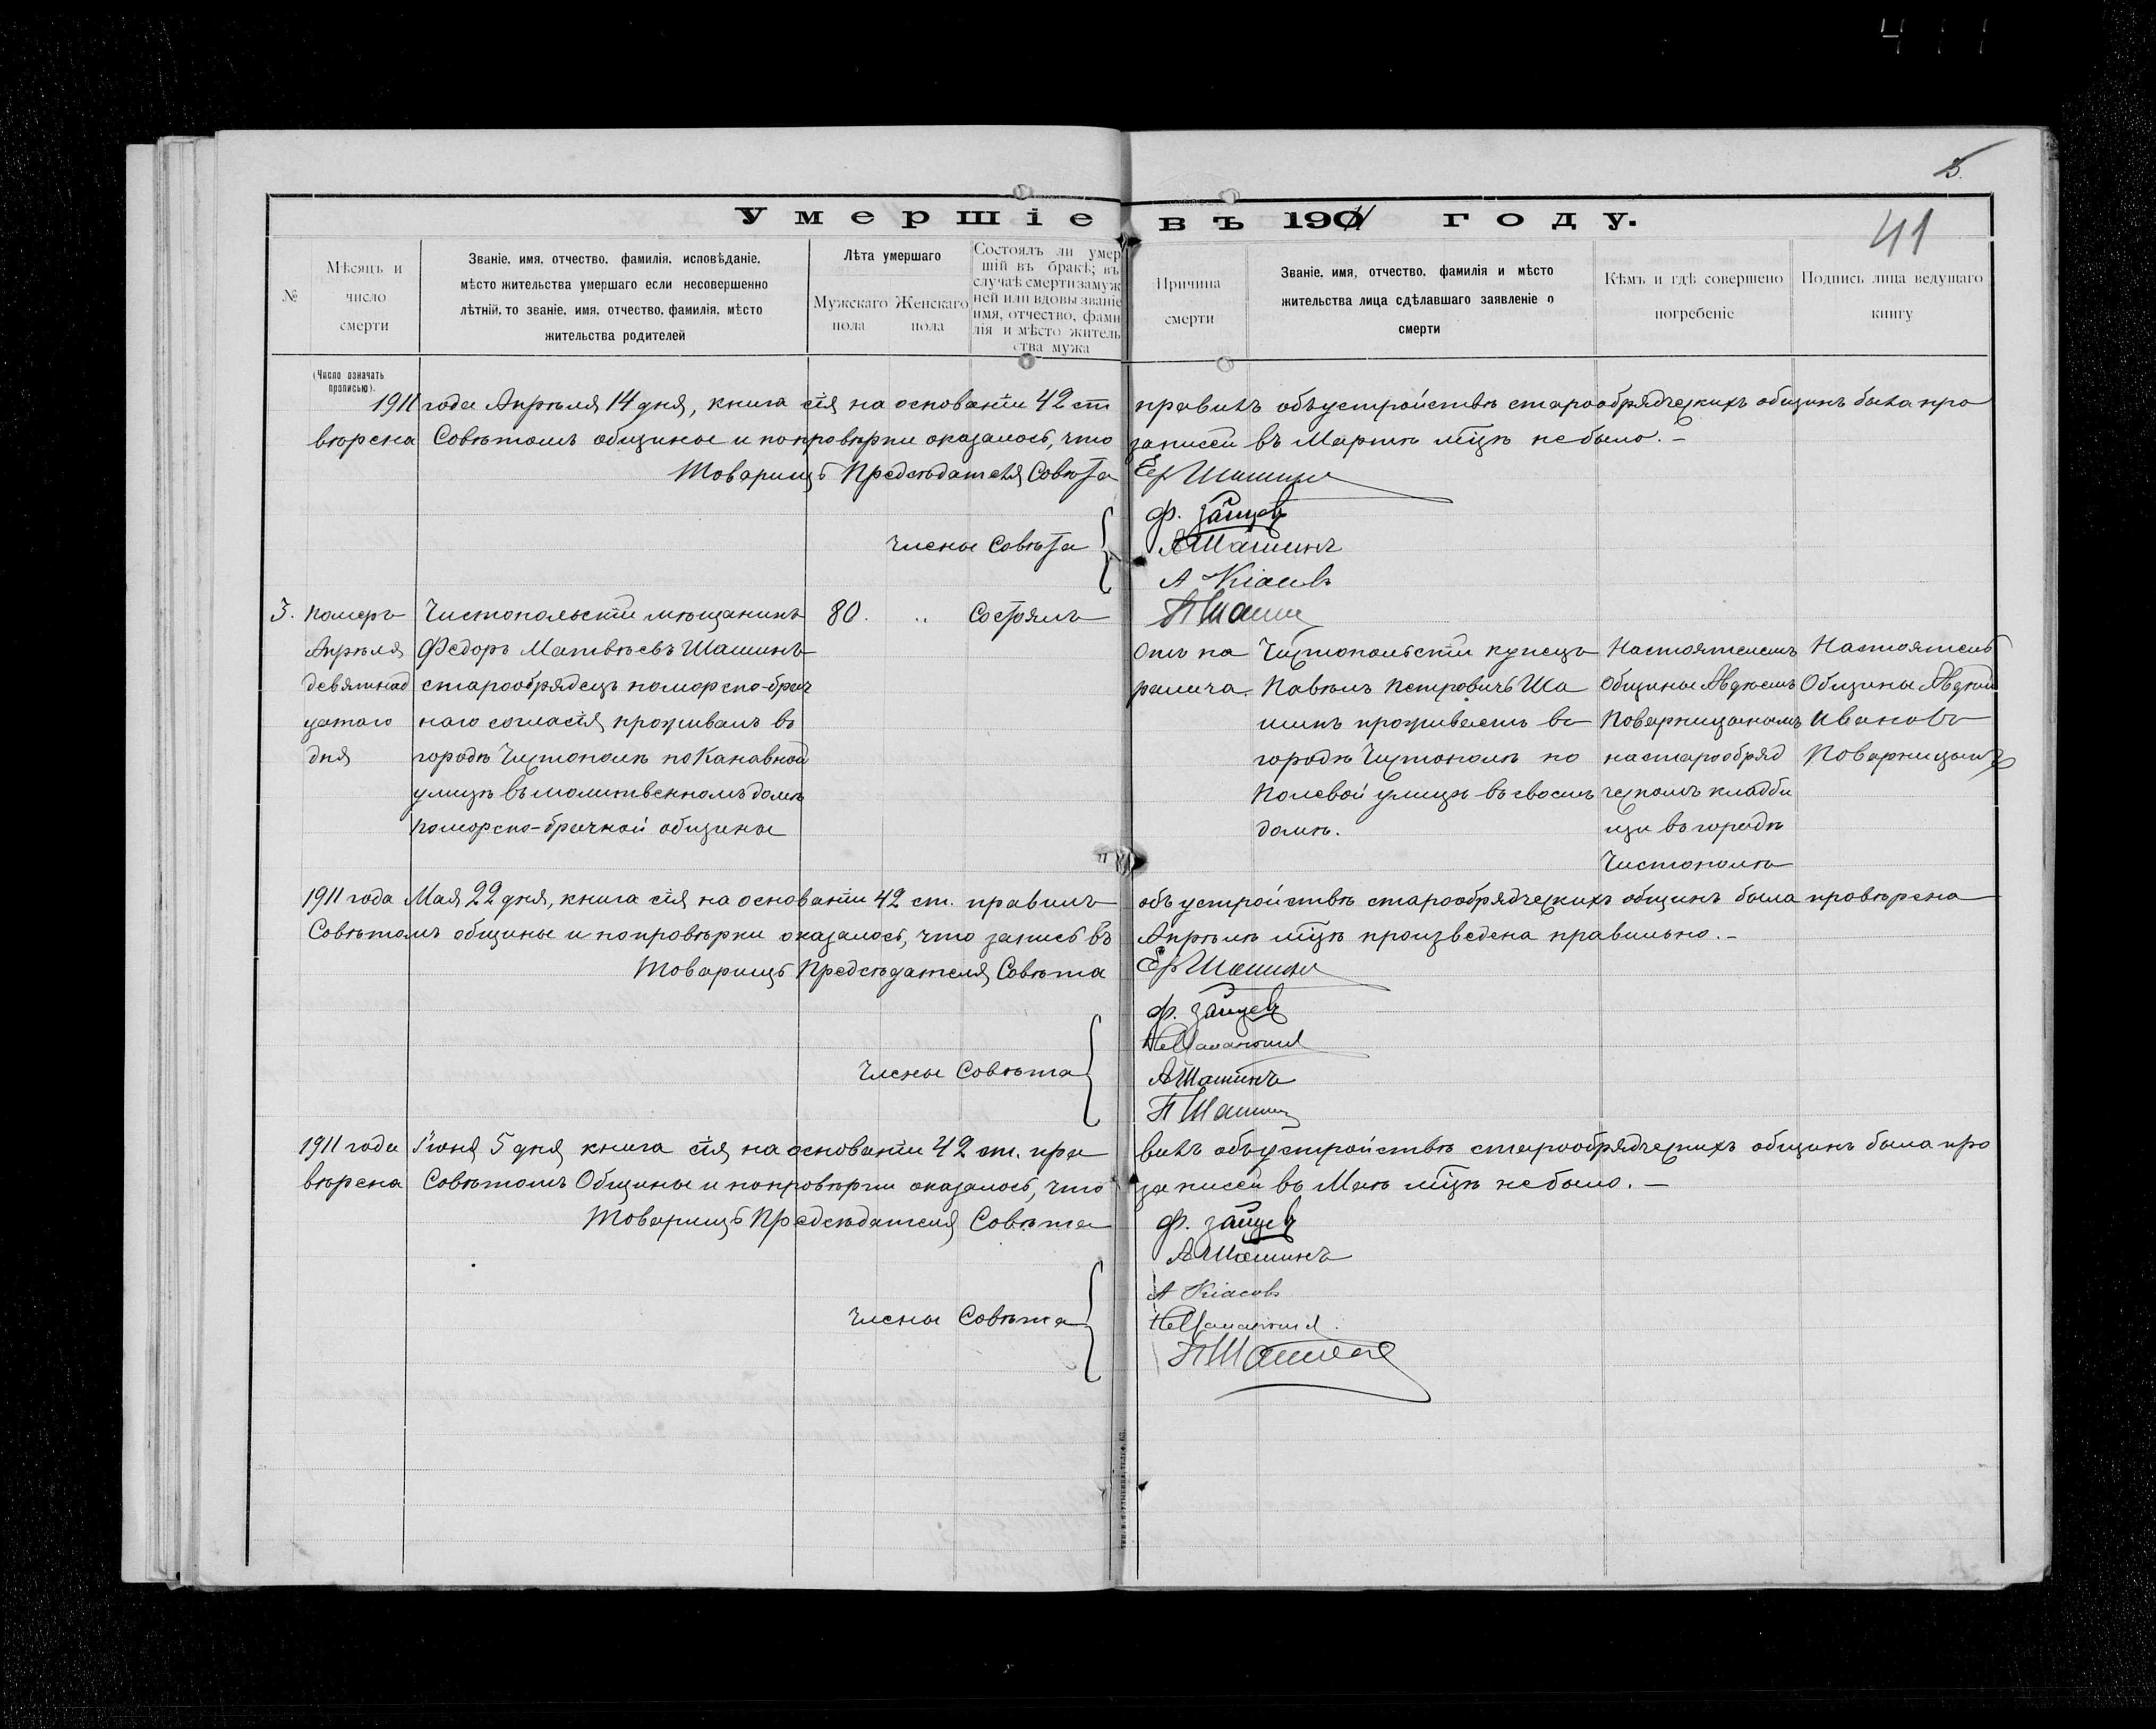 5.
Умершіе въ 1911 году.
41
№
Мѣсяцъ и
число
смерти
Званіе, имя, отчество, фамилія, исповѣданіе,
мѣсто жительства умершаго если несовершенно
лѣтній, то званіе, имя, отчество, фамилія, мѣсто
жительства родителей
Лѣта умершаго
Мужскаго пола
Женскаго пола
Состоялъ ли умер
шій въ бракѣ; въ
случаѣ смерти замуж
ней или вдовы званіе
имя, отчество, фами
лія и мѣсто житель
ства мужа
Причина
смерти
Званіе, имя, отчество, фамилія и мѣсто
жительства лица сдѣлавшаго заявленіе о
смерти
Кѣмъ и гдѣ совершено
погребеніе
Подпись лица ведущаго
книгу
(Число означать
прописью).
1911 года Апрѣля 14 дня, книга сія на основаніи 42 ст правилъ объ устройствѣ старообрядческихъ общинъ была про
вѣрена Совѣтомъ общины и по провѣрки оказалось, что записей въ Мартѣ мѣцѣ не было. –
Товарищъ Предсѣдателя Совѣта Ер Шашинъ
Члены Совѣта
Ф. Зайцевъ
А Шашинъ
А Класовъ
П Шашин
3.
Померъ
Апрѣля
девятнад
цатаго
дня
Чистопольскій мѣщанинъ
Федоръ Матвѣевъ Шашинъ
старообрядецъ поморско-брач
наго согласія проживалъ въ
городѣ Чистополѣ по Канавной
улицѣ въ молитвенномъ домѣ
поморско-брачной общины
80. „
Состоялъ
Отъ па
ралича.
Чистопольскій купецъ
Павелъ Петровичъ Ша
шинъ проживаетъ въ
городѣ Чистополѣ по
Полевой улицѣ въ своемъ
домѣ.
Настоятелемъ
Общины Авдѣемъ
Поварницынымъ
на старообряд
ческомъ кладби
щѣ въ городѣ
Чистополѣ
Настоятель
Общины Авдѣй
Ивановъ
Поварницынъ
1911 года Мая 22 дня, книга сія на основаніи 42 ст. правилъ объ устройствѣ старообрядческихъ общинъ была провѣрена
Совѣтомъ общины и по провѣрки оказалось, что запись въ Апрѣлѣ мѣцѣ произведена правильно. –
Товарищъ Предсѣдателя Совѣта Ер Шашинъ
Члены Совѣта
Ф. Зайцевъ
А Шашинъ
П Шашин
1911 года Іюня 5 дня книга сія на основаніи 42 ст. пра вилъ объ устройствѣ старообрядческихъ общинъ была про
вѣрена Совѣтомъ Общины и по провѣрки оказалось, что записей въ Маѣ мѣцѣ не было. –
Товарищъ Предсѣдателя Совѣта Ф. Зайцевъ
Члены Совѣта
А Шашинъ
А Класовъ
П Шашин